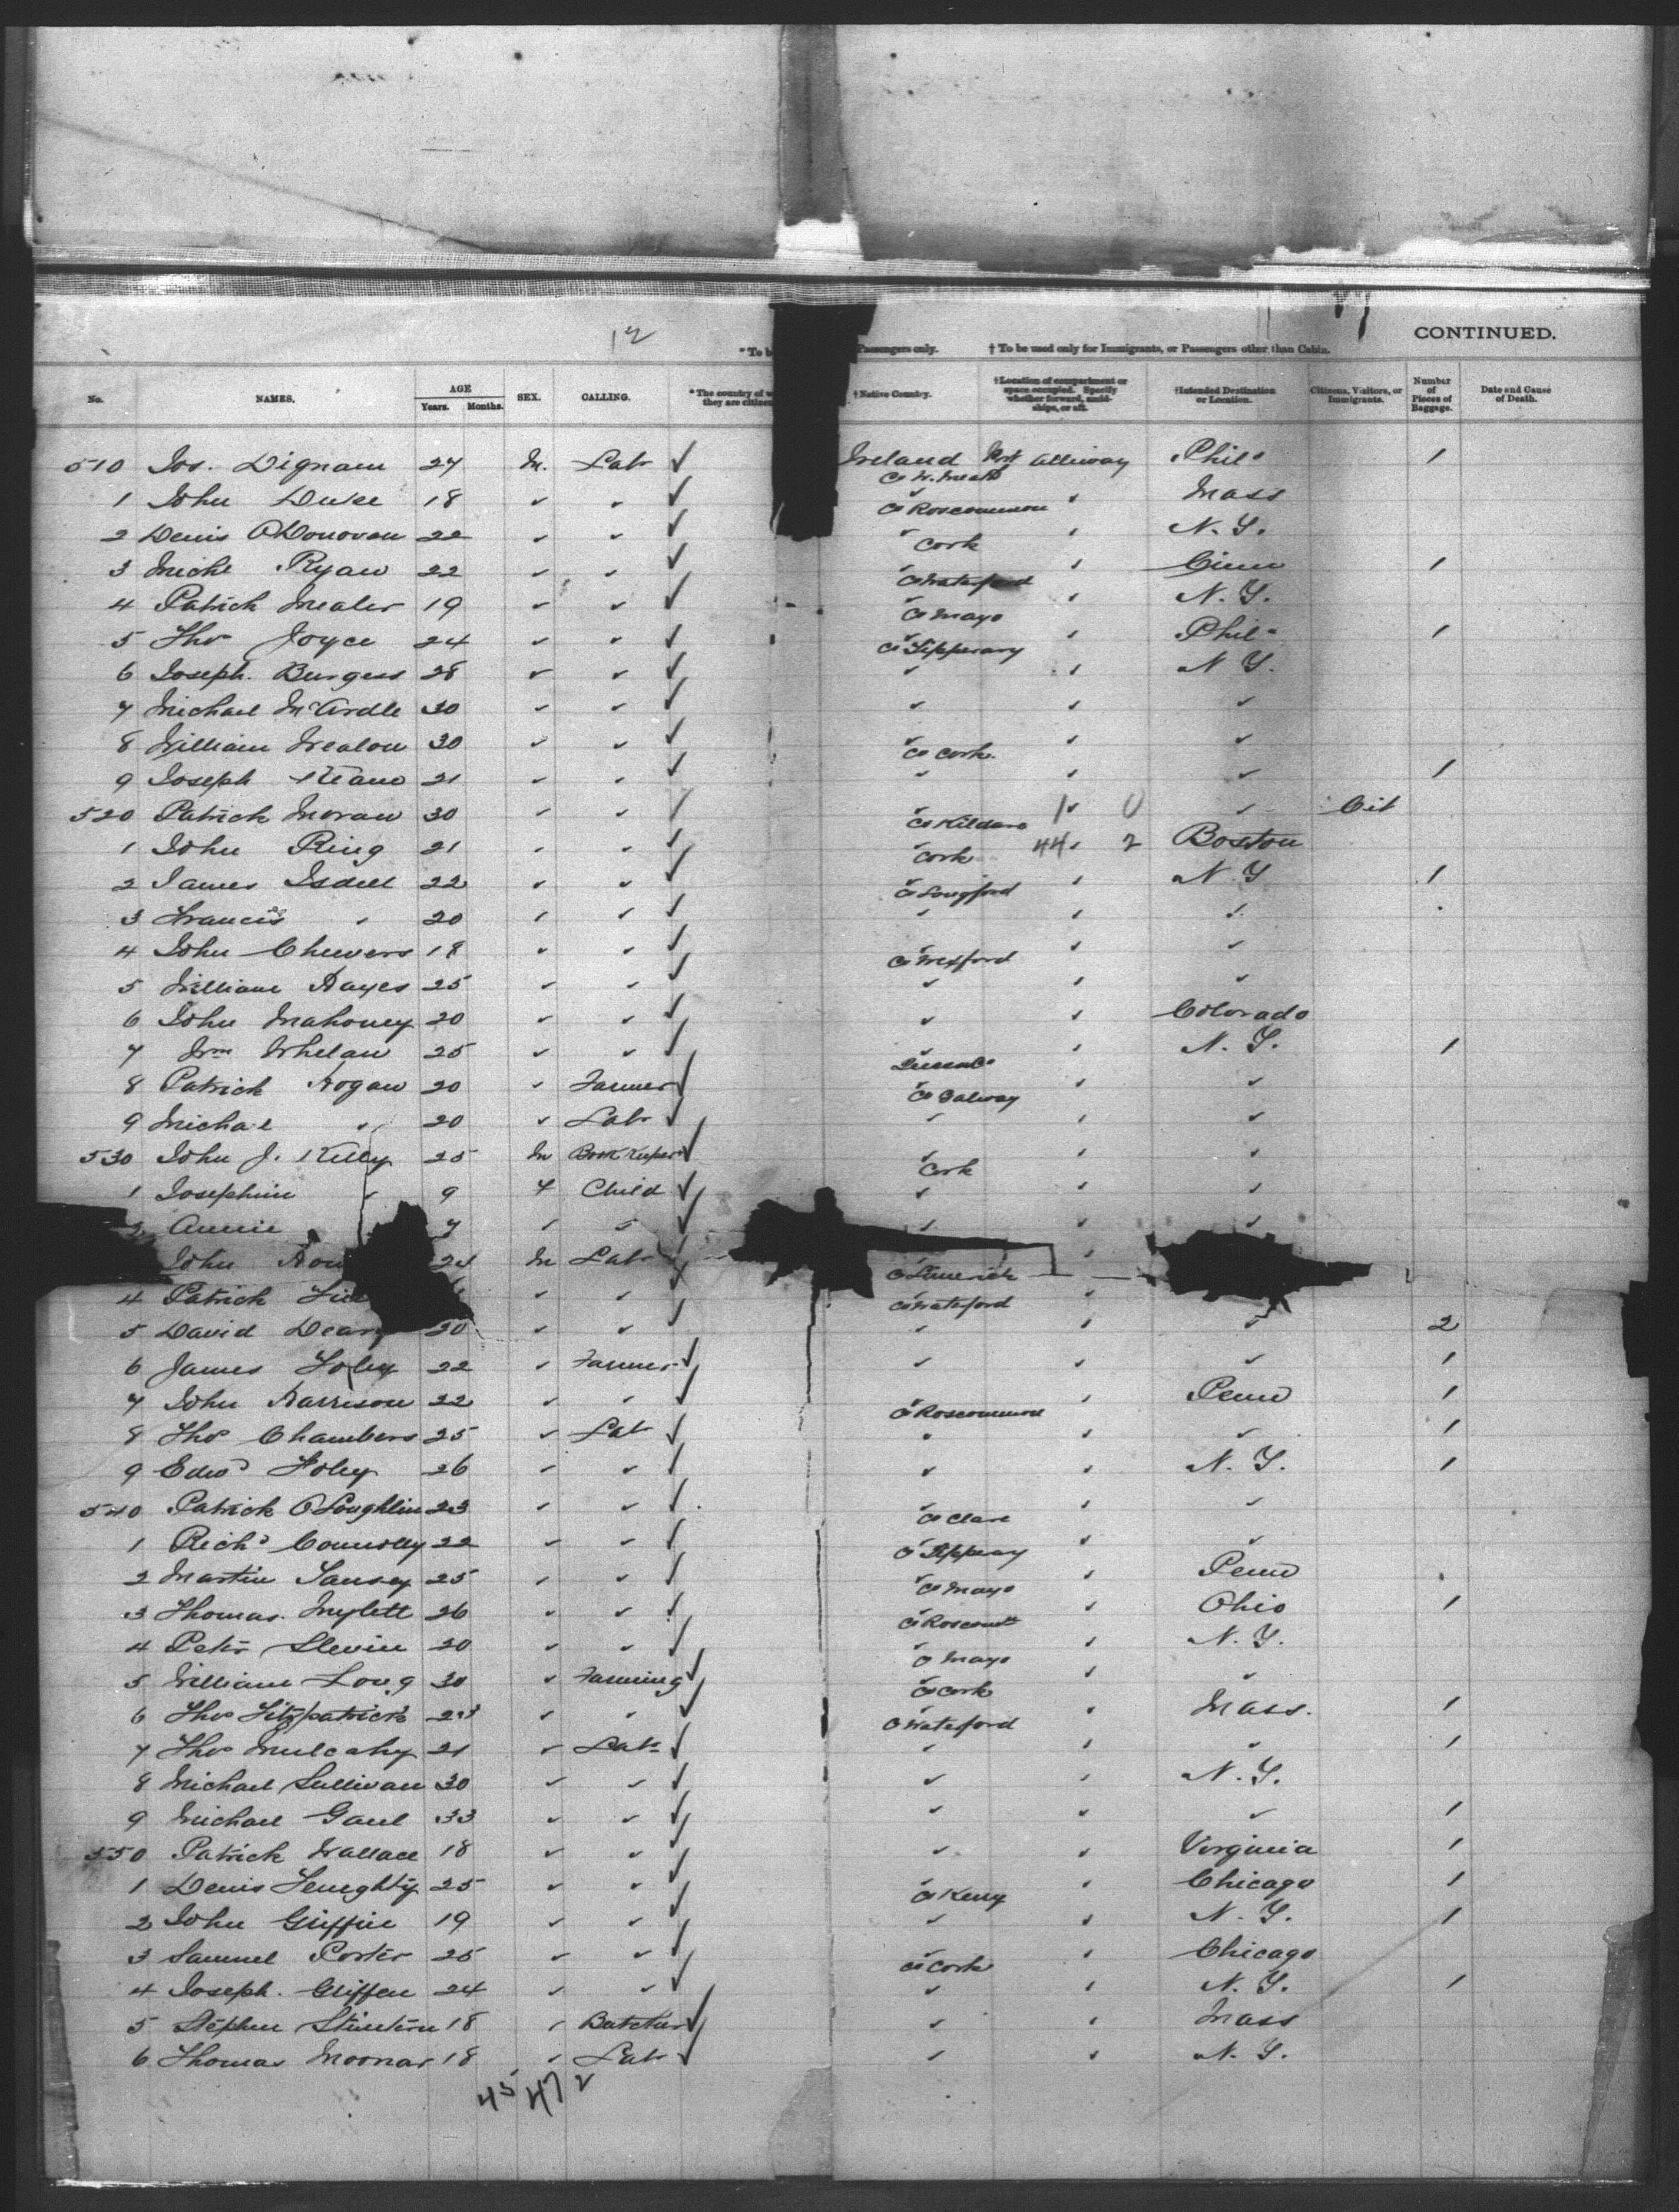 12
CONTINUED.
* To b Passengers only. † To be used only for Immigrants, or Passengers other than Cabin.
No. NAMES. AGE Years. Months. SEX. CALLING. * The country of w they are citizen † Native Country. † Location of compartment or space occupied. Specify whether forward, amidships, or aft. † Intended Destination or Location. Citizens, Visitors, or Immigrants. Number of Pieces of Baggage. Date and Cause of Death.
510 Jos. Dignam 27 M. Lab ✓ Ireland Co W. Meath alliway Phila 1
1 John Duke 18 " " ✓ " Co Roscommon " Mass
2 Denis O'Donovan 22 " " ✓ " Cork " N. Y.
3 Michl Ryan 22 " " ✓ " Co Waterford " Cinn 1
4 Patrick Mealer 19 " " ✓ " Co Mayo " N. Y.
5 Thos Joyce 24 " " ✓ " Co Tipperary " Phila 1
6 Joseph Burgess 28 " " ✓ " " N Y.
7 Michael McArdle 30 " " ✓ " " "
8 William Wealon 30 " " ✓ " Co Cork " "
9 Joseph Keane 21 " " ✓ " " " 1
520 Patrick Moran 30 " " ✓ " Co Kildare 1 " 0 " Cit
1 John Ring 21 " " ✓ " Cork 44 " 2 Boston
2 James Isdell 22 " " ✓ " Co Longford " N. Y 1
3 Francis " 20 " " ✓ " " "
4 John Cheevers 18 " " ✓ " Co Wexford " "
5 William Hayes 25 " " ✓ " " "
6 John Mahoney 20 " " ✓ " " Colorado
7 Wm Whelan 25 " " ✓ " Queens Co " N. Y. 1
8 Patrick Hogan 20 " Farmer ✓ " Co Galway " "
9 Michael " 20 " Lab ✓ " " "
530 John J. Kelly 25 M Book Keeper ✓ " Cork " "
1 Josephine " 9 F Child ✓ " " "
2 Annie 7 " " ✓ " " "
John M Lab ✓ " Co Limerick "
4 Patrick " " ✓ " Co Waterford "
5 David 20 " " ✓ " " " 2
6 James Foley 22 " Farmer ✓ " " " 1
7 John Harrison 22 " " ✓ " Co Roscommon " Penn 1
8 Thos Chambers 25 " Lab ✓ " " " 1
9 Edwd Foley 26 " " ✓ " " N. Y. 1
540 Patrick O'Loughlin 23 " " ✓ " Co Clare " "
1 Richd Connolly 22 " " ✓ " Co Tipperary " "
2 Martin Tansey 25 " " ✓ " Co Mayo " Penn
3 Thomas Mylett 26 " " ✓ " Co Roscom " Ohio 1
4 Peter Slevin 20 " " ✓ " Co Mayo " N. Y.
5 William Long 30 " Farming ✓ " Co Cork " "
6 Thos Fitzpatrick 23 " " ✓ " Co Waterford " Mass. 1
7 Thos Mulcahy 21 " Lab ✓ " " " 1
8 Michael Sullivan 30 " " ✓ " " N. Y.
9 Michael Gaul 33 " " ✓ " " " 1
550 Patrick Wallace 18 " " ✓ " " Virginia 1
1 Denis 25 " " ✓ " Co Kerry " Chicago 1
2 John Griffin 19 " " ✓ " " N. Y. 1
3 Samuel Porter 25 " " ✓ " Co Cork " Chicago
4 Joseph Griffen 24 " " ✓ " " N. Y. 1
5 Stephen 18 " Butcher ✓ " " Mass
6 Thomas 18 " Lab ✓ " " N. Y.
45 47 2